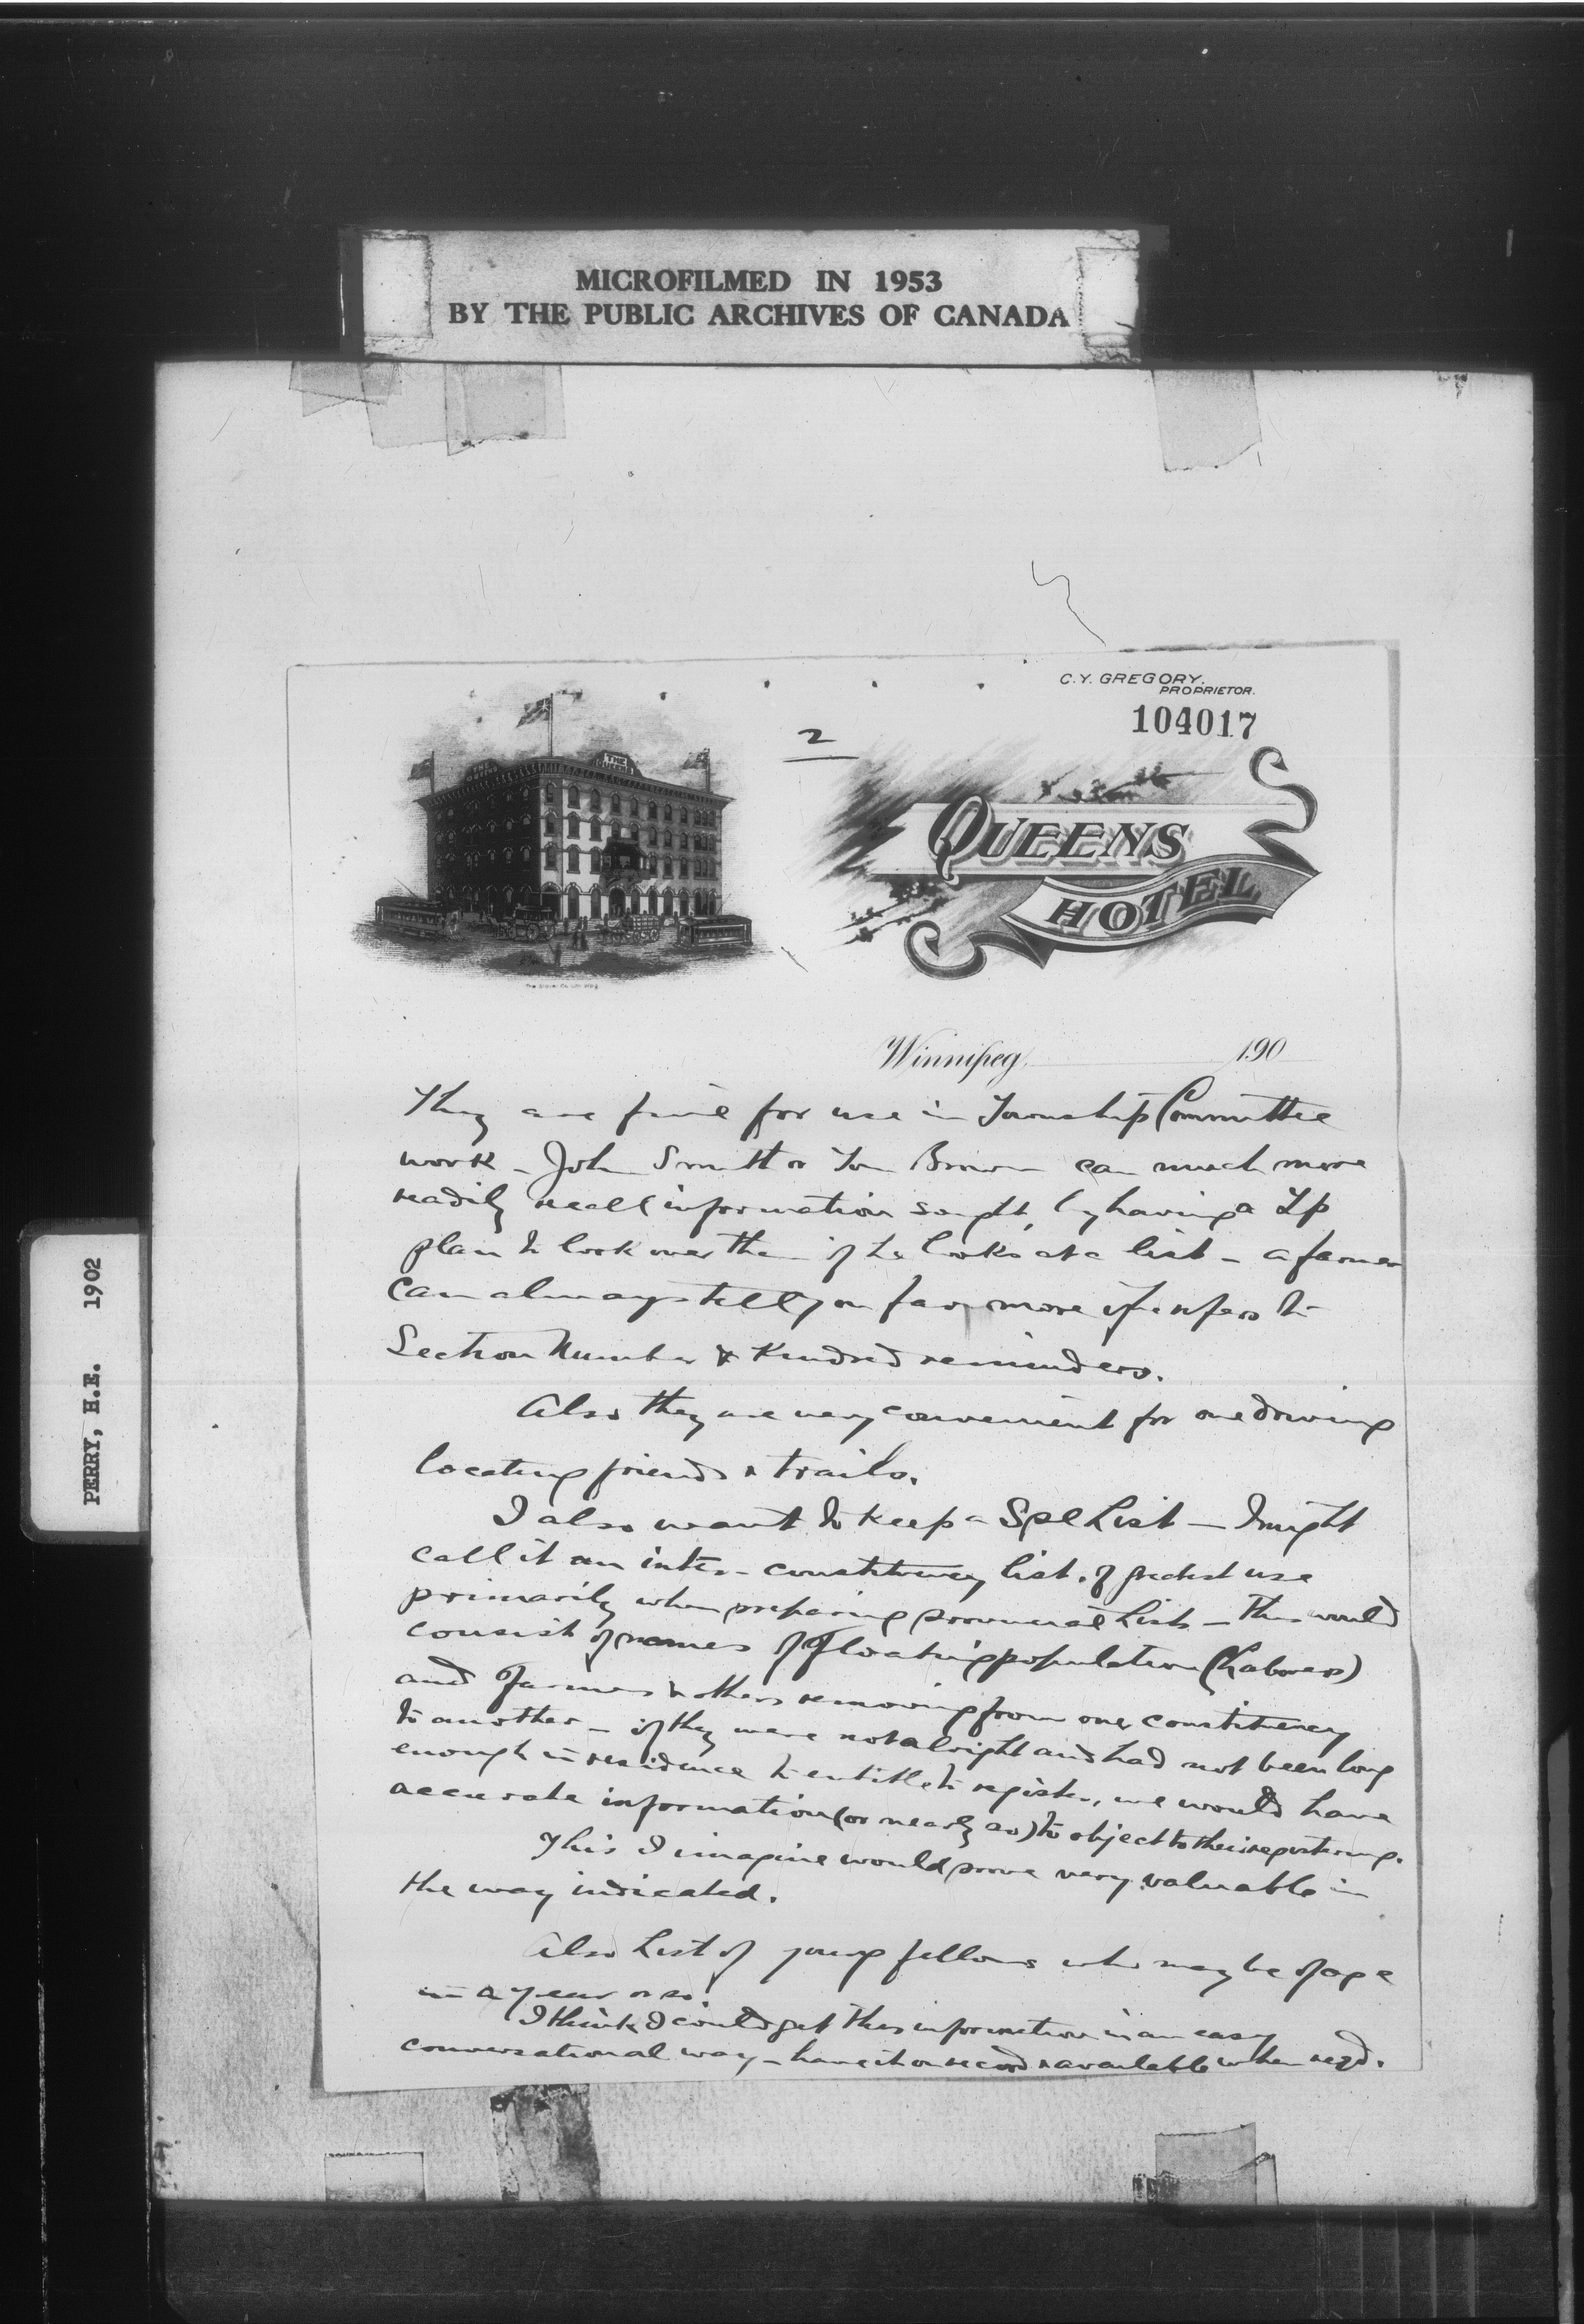 MICROFILMED IN 1953
BY THE PUBLIC ARCHIVES OF CANADA
PERRY, H.E. 1902
C.Y. GREGORY.
PROPRIETOR.
104017
2
THE QUEENS
QUEENS
HOTEL
Winnipeg, 190
They are fine for use in Township Committee
work - John Smith or Tom Brown can much more
readily recall information sought, by having a Tp
plan to look over than if he looks at a list - a farmer
can always tell you far more if he refers to
Section Number & Kindred reminders.
Also they are very convenient for one driving
locating friends & trails.
I also want to keep a Spl List - I might
call it an inter-constituency list. of greatest use
primarily when preparing provincial Lists - This would
consist of names of Floating population (Laborers)
and Farmers & others removing from one constituency
to another - if they were not alright and had not been long
enough in residence to entitle to register, we would have
accurate information (or nearly so) to object to their registering.
This I imagine would prove very valuable in
the way indicated.
Also List of young fellows who may be of age
in a year or so.
I think I could get this information in an easy
conversational way - have it on record & available when reqd.